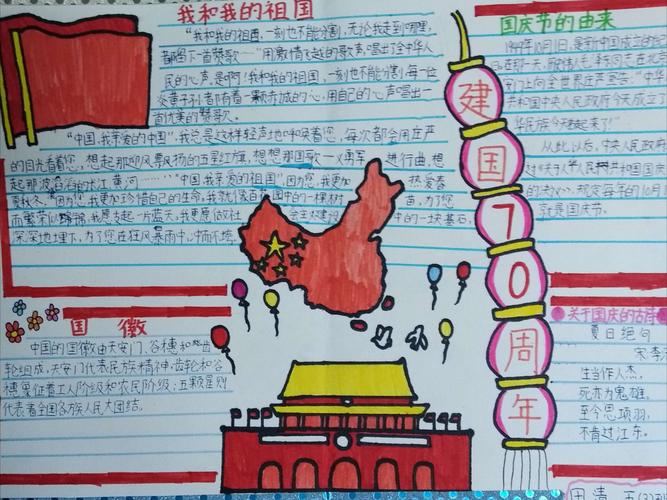 我和我的祖国
"我和我的祖国,一刻也不能分割,无论我走到哪里,
都留下一首赞歌——"用激情飞越的歌声,唱出了全中华人
民的心声。是啊!我和我的祖国,一刻也不能分割,每一位
炎黄子孙都有着一颗赤诚的心,用自己的心声唱出一
首优美的赞歌。
"中国,我亲爱的中国",我总是这样轻声地呼唤着您,每次都会用庄严
的目光看着您,想起那迎风飘扬的五星红旗,想想那国歌——义勇军进行曲,想
起那波涛
长江、黄河……"中国,我亲爱的祖国",因为您,我更加热爱春
夏秋冬,因为您,我更加珍惜自己的生命,我就像百花园中的一棵树苗,为了您
深深地埋下,为了您在狂风暴雨中屹而不塌。
国庆节的由来
1949年10月1日,是新中国成立的
安门上向全世界庄严宣告:"中华
共和国中央人民政府今天成立了
华民族今天
起来了!"
从此以后,中央人民政府
规定每年的10月
就是国庆节。
建国70周年
国徽
中国的国徽由天安门、谷穗和齿
轮组成,天安门代表民族精神,齿轮和谷
穗象征着工人阶级和农民阶级;五颗星则
代表着全国各族人民大团结。
关于国庆的古诗
夏日绝句
宋李
生当作人杰,
死亦为鬼雄。
至今思项羽,
不肯过江东。
田清 五(3)